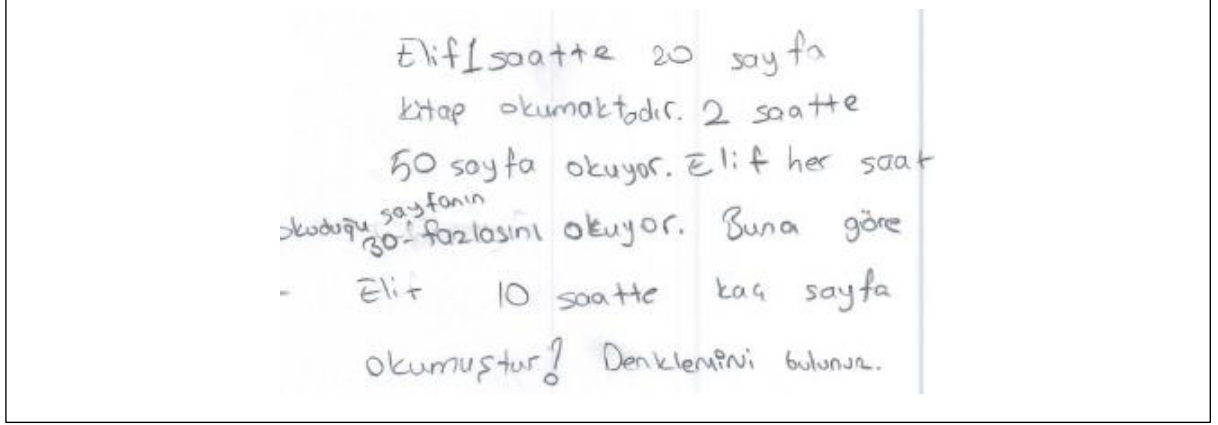 Elif 1 saatte 20 sayfa
kitap okumaktadır. 2 saatte
50 sayfa okuyor. Elif her saat
okuduğu sayfanın
30 fazlasını okuyor. Buna göre
- Elif 10 saatte kaç sayfa
okumuştur? Denklemini bulunuz.